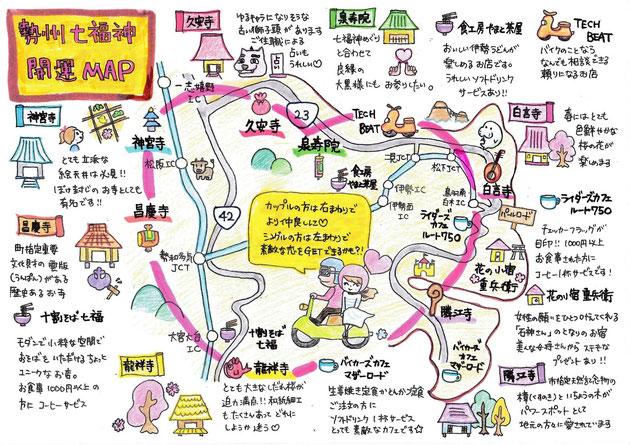 勢州七福神
開運MAP
久安寺
ゆるキャラになりそうな
古い獅子頭があります
ご住職による
占いも
うれしい♡
泉寿院
七福神めぐり
と合わせて
良縁の
大黒様にも
お参りしたい。
食工房やまと茶屋
おいしい伊勢うどんが
楽しめるお店です
うれしいソフトドリンク
サービスあり!!
TECH
BEAT
バイクのことなら
なんでも相談できる
頼りになるお店
神宮寺
とても立派な
絵天井は必見!!
ぼけ封じのお寺としても
有名です!!
白言寺
春にはとても
色鮮やかな
桜の花が
楽しめます
一志嬉野
IC
久安寺
23
TECH
BEAT
泉寿院
神宮寺
松阪IC
食工房
やまと茶屋
二見JCT
松下JCT
白言寺
伊勢IC
伊勢西
IC
鳥羽南
白木IC
パールロード
ライダーズカフェ
ルート750
ライダーズカフェ
ルート750
チェッカーフラッグが
目印!! 1000円以上
お食事された方に
コーヒー1杯サービスです!
昌慶寺
町指定重要
文化財の雲版
(うんばん)がある
歴史あるお寺
昌慶寺
42
カップルの方は右まわりで
より仲良しに♡
シングルの方は左まわりで
素敵な恋をGETできるかも?!
勢和多気
JCT
花の小宿
重兵衛
花の小宿重兵衛
女性の願いをひとつ叶えてくれる
「石神さん」のとなりのお宿
美人な女将さんから ステキな
プレゼントあり!!
勝江寺
バイカーズ
カフェ
マザーロード
大宮大台
IC
十割そば
七福
龍祥寺
十割そば七福
モダンで小粋な空間で
おそばをいただけるちょっと
ユニークなお店。
お食事1000円以上の
方にコーヒーサービス
龍祥寺
とても大きなしだれ桜が
迫力満点!! 和紙細工も
たくさんあって どれに
しようか迷う♡
バイカーズカフェ
マザーロード
生姜焼き定食かとんかつ定食
ご注文の方に
ソフトドリンク1杯サービス
とっても素敵なカフェです☆
勝江寺
市指定天然記念物の
樟(くすのき)といちょうの木が
パワースポットとして
地元の方などに愛されています